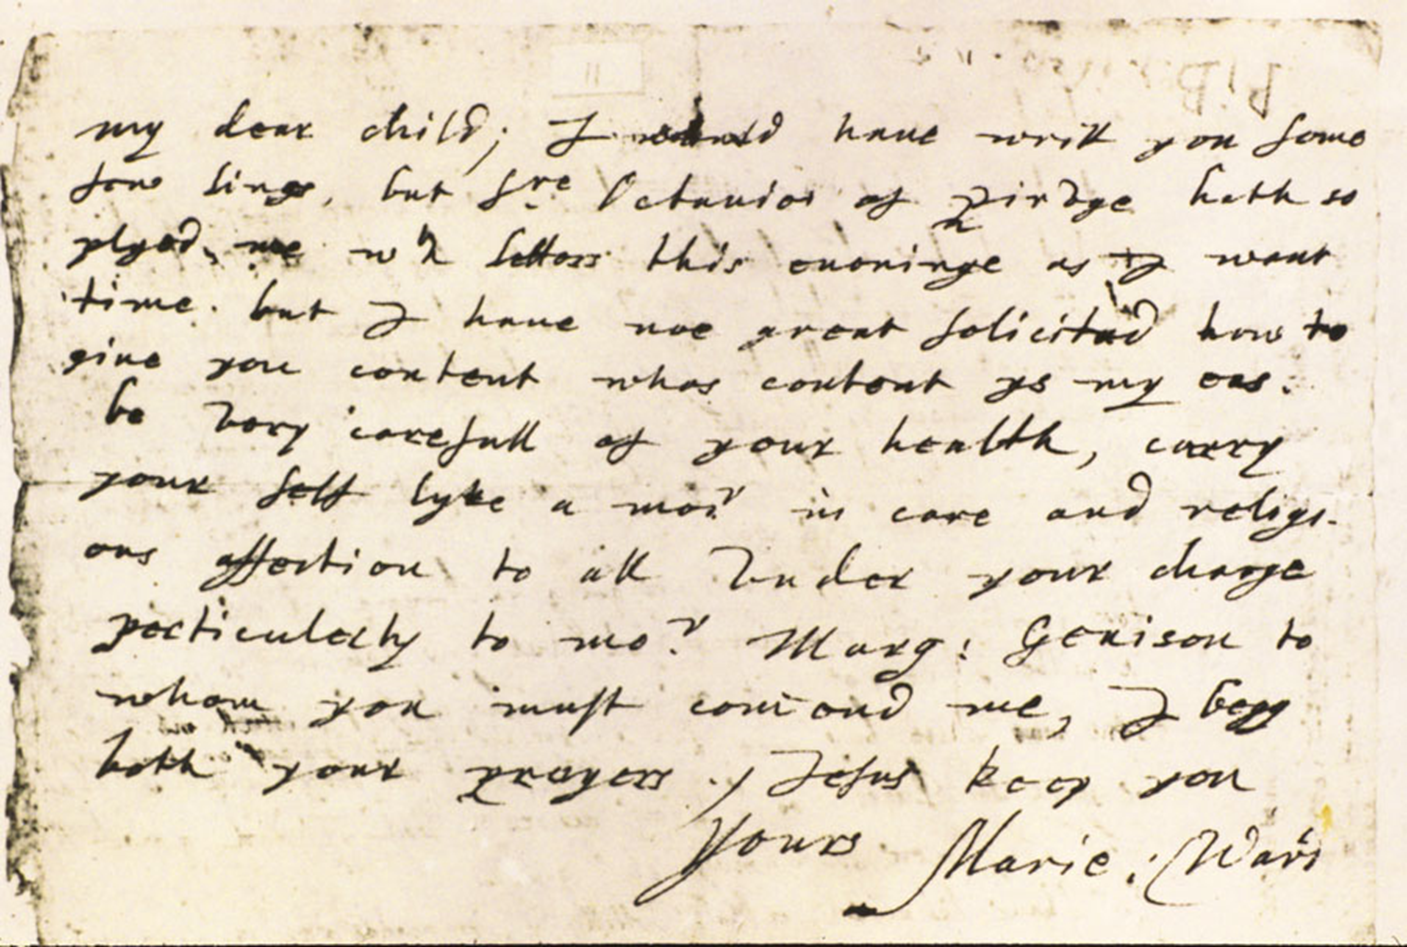 my dear child; I would have writ you some
few lines, but Sre Octavios of
plyed me wth letters this eveninge as I want
time. but I have noe great solicitud how to
give you content whos content ys my
be very carefull of your health, carry
your self lyke a mor in care and religi-
ous affection to all Vnder your charge
perticulerly to mor Marg: Genison to
whom you must comend me, I begg
both your prayers. Jesus keep you
Yours Marie: Ward
11